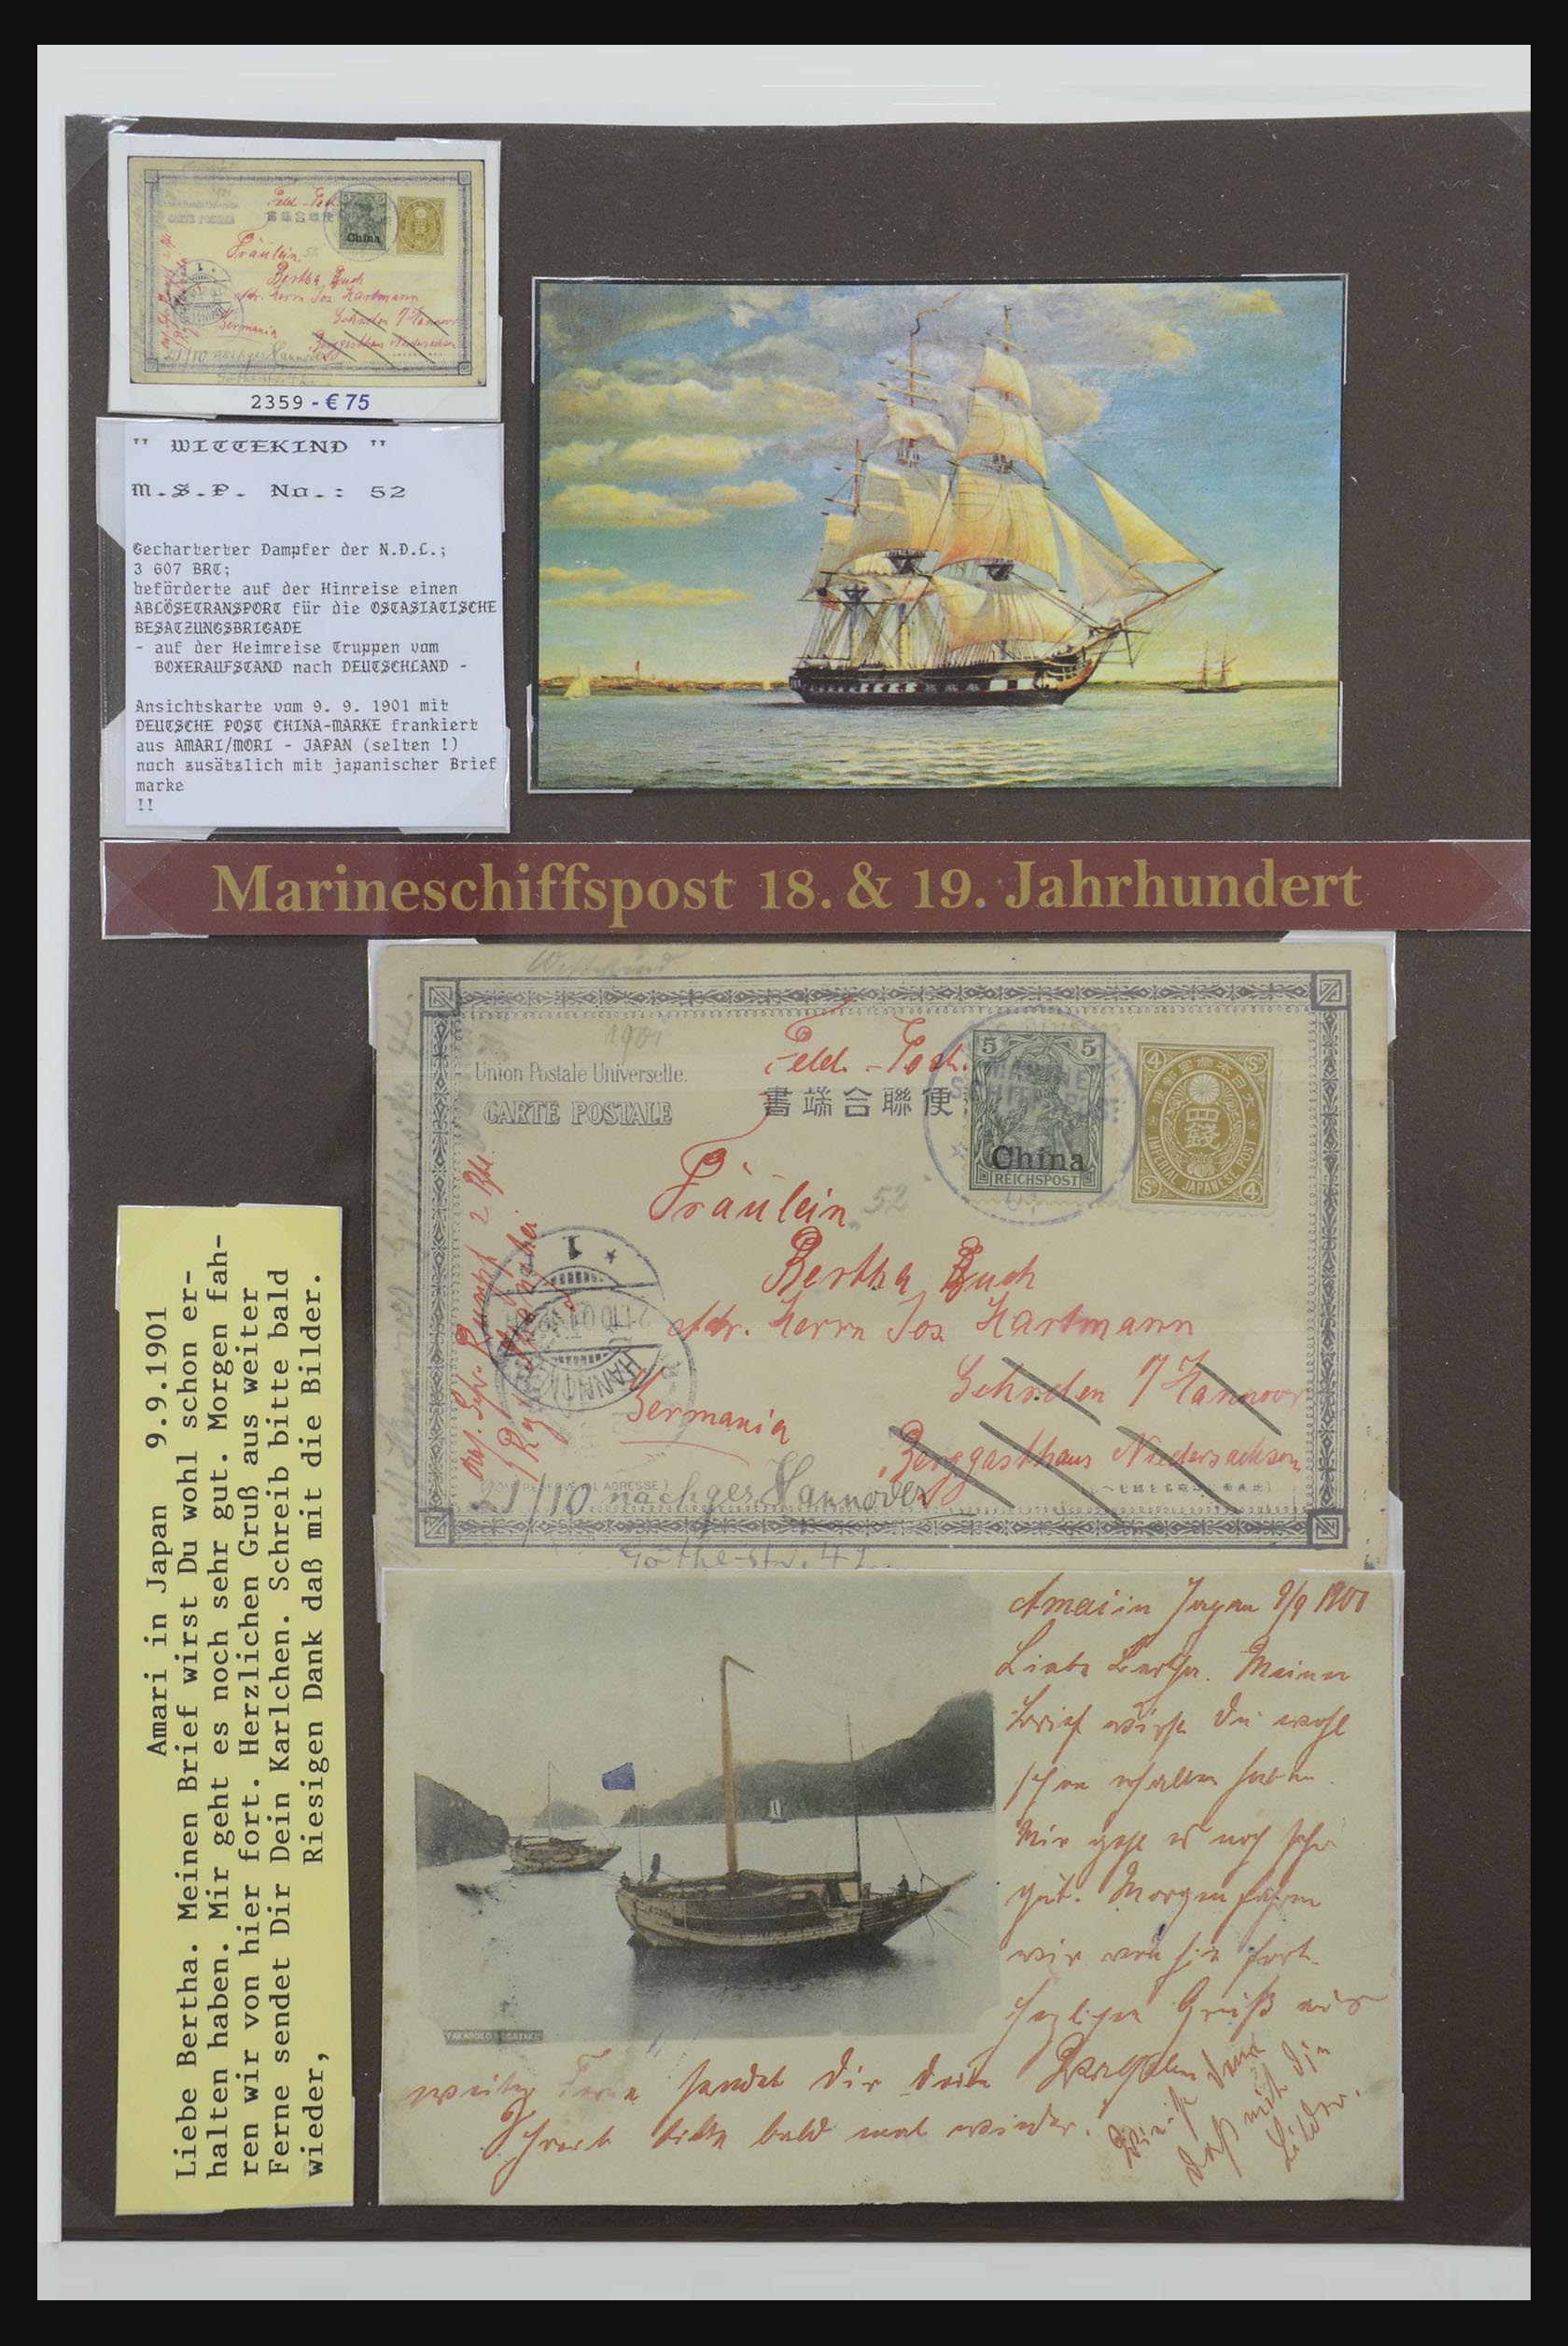 Feld-Post.
China
Fräulein 52
Bertha Buch
Adr. Herrn Jos Hartmann
Sehnden / Hannover
Germania
Berggasthaus Niedersachsen
21/10 nachges. Hannover
2359 - € 75
" WITTEKIND "
M.S.P. No.: 52
Gecharterter Dampfer der N.D.L.;
3 607 BRT;
beförderte auf der Hinreise einen
ABLÖSETRANSPORT für die OSTASIATISCHE
BESATZUNGSBRIGADE
- auf der Heimreise Truppen vom
BOXERAUFSTAND nach DEUTSCHLAND -
Ansichtskarte vom 9. 9. 1901 mit
DEUTSCHE POST CHINA-MARKE frankiert
aus AMARI/MORI - JAPAN (selten !)
noch zusätzlich mit japanischer Brief
marke
!!
Marineschiffspost 18. & 19. Jahrhundert
Wittekind
1901
Feld-Post.
Union Postale Universelle.
CARTE POSTALE
書端合聯便
5 5
China
REICHSPOST
4 Sn
大日本帝國郵便
四錢
IMPERIAL JAPANESE POST
Sn 4
MARINE
Fräulein 52
Bertha Buch
Adr. Herrn Jos Hartmann
Sehnden / Hannover
Germania
Berggasthaus Niedersachsen
21/10 nachges. Hannover
Göthe-str. 42
HANNOVER
1
Amari in Japan 9.9.1901
Liebe Bertha. Meinen Brief wirst Du wohl schon er-
halten haben. Mir geht es noch sehr gut. Morgen fah-
ren wir von hier fort. Herzlichen Gruß aus weiter
Ferne sendet Dir Dein Karlchen. Schreib bitte bald
wieder, Riesigen Dank daß mit die Bilder.
Amari in Japan 9/9 1901
Liebe Bertha. Meinen
Brief wirst Du wohl
schon erhalten haben.
Mir geht es noch sehr
gut. Morgen fahren
wir von hier fort.
Herzlichen Gruß aus
weiter Ferne sendet Dir dein Karlchen
Schreib bitte bald mal wieder.
Dank
daß mit die
Bilder.
TAKABOKO NAGASAKI